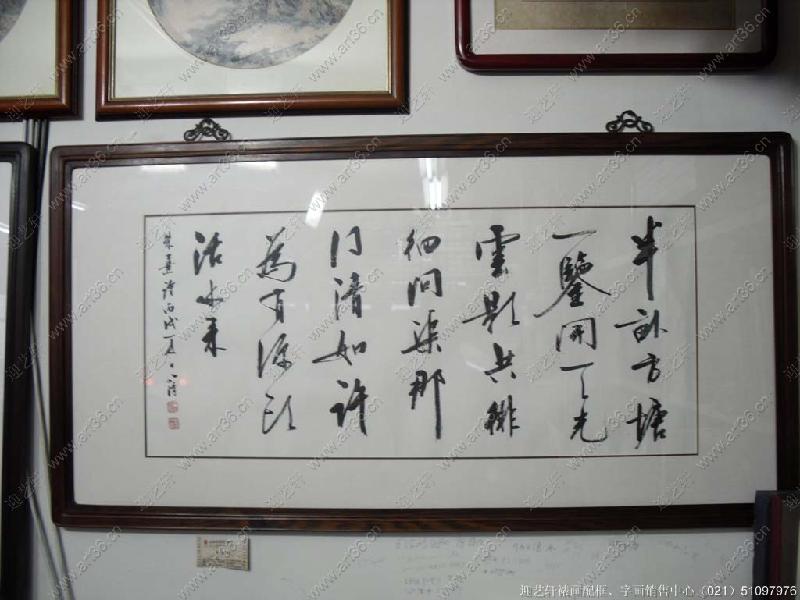 半畝方塘
一鑒開天光
雲影共徘
徊问渠那
得清如許
為有源头
活水来
朱熹诗丙戌夏
迎艺轩 www.art36.cn
迎艺轩裱画配框、字画销售中心（021）51097976